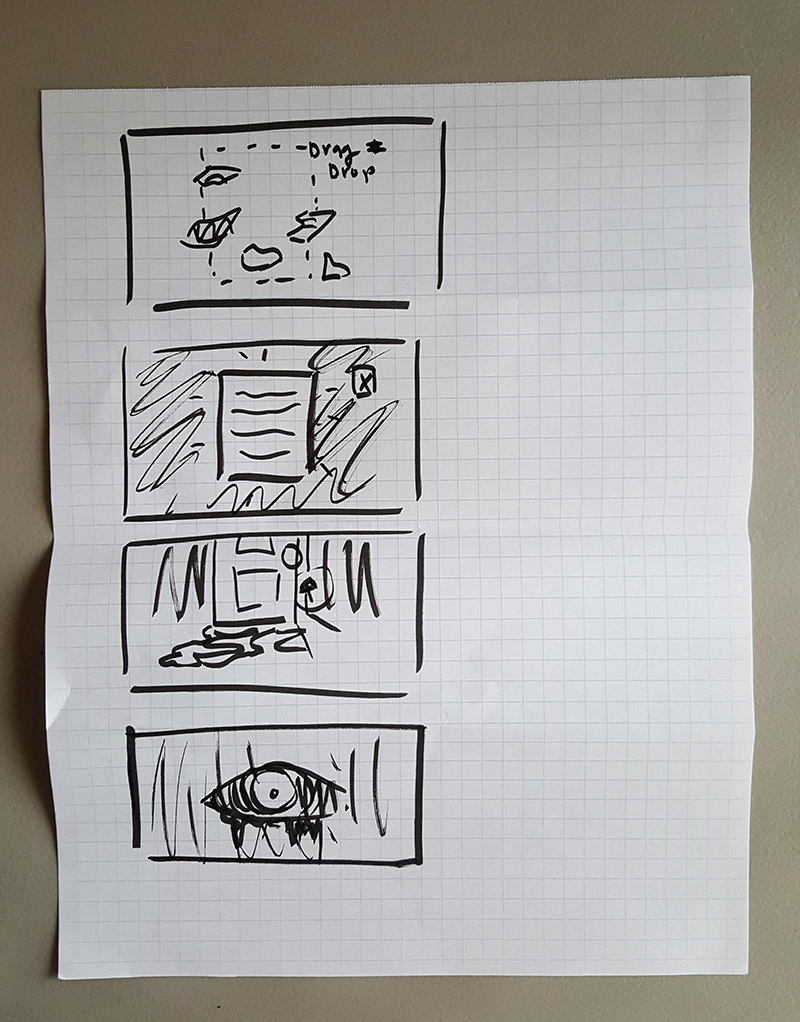 Drag *
Drop
X